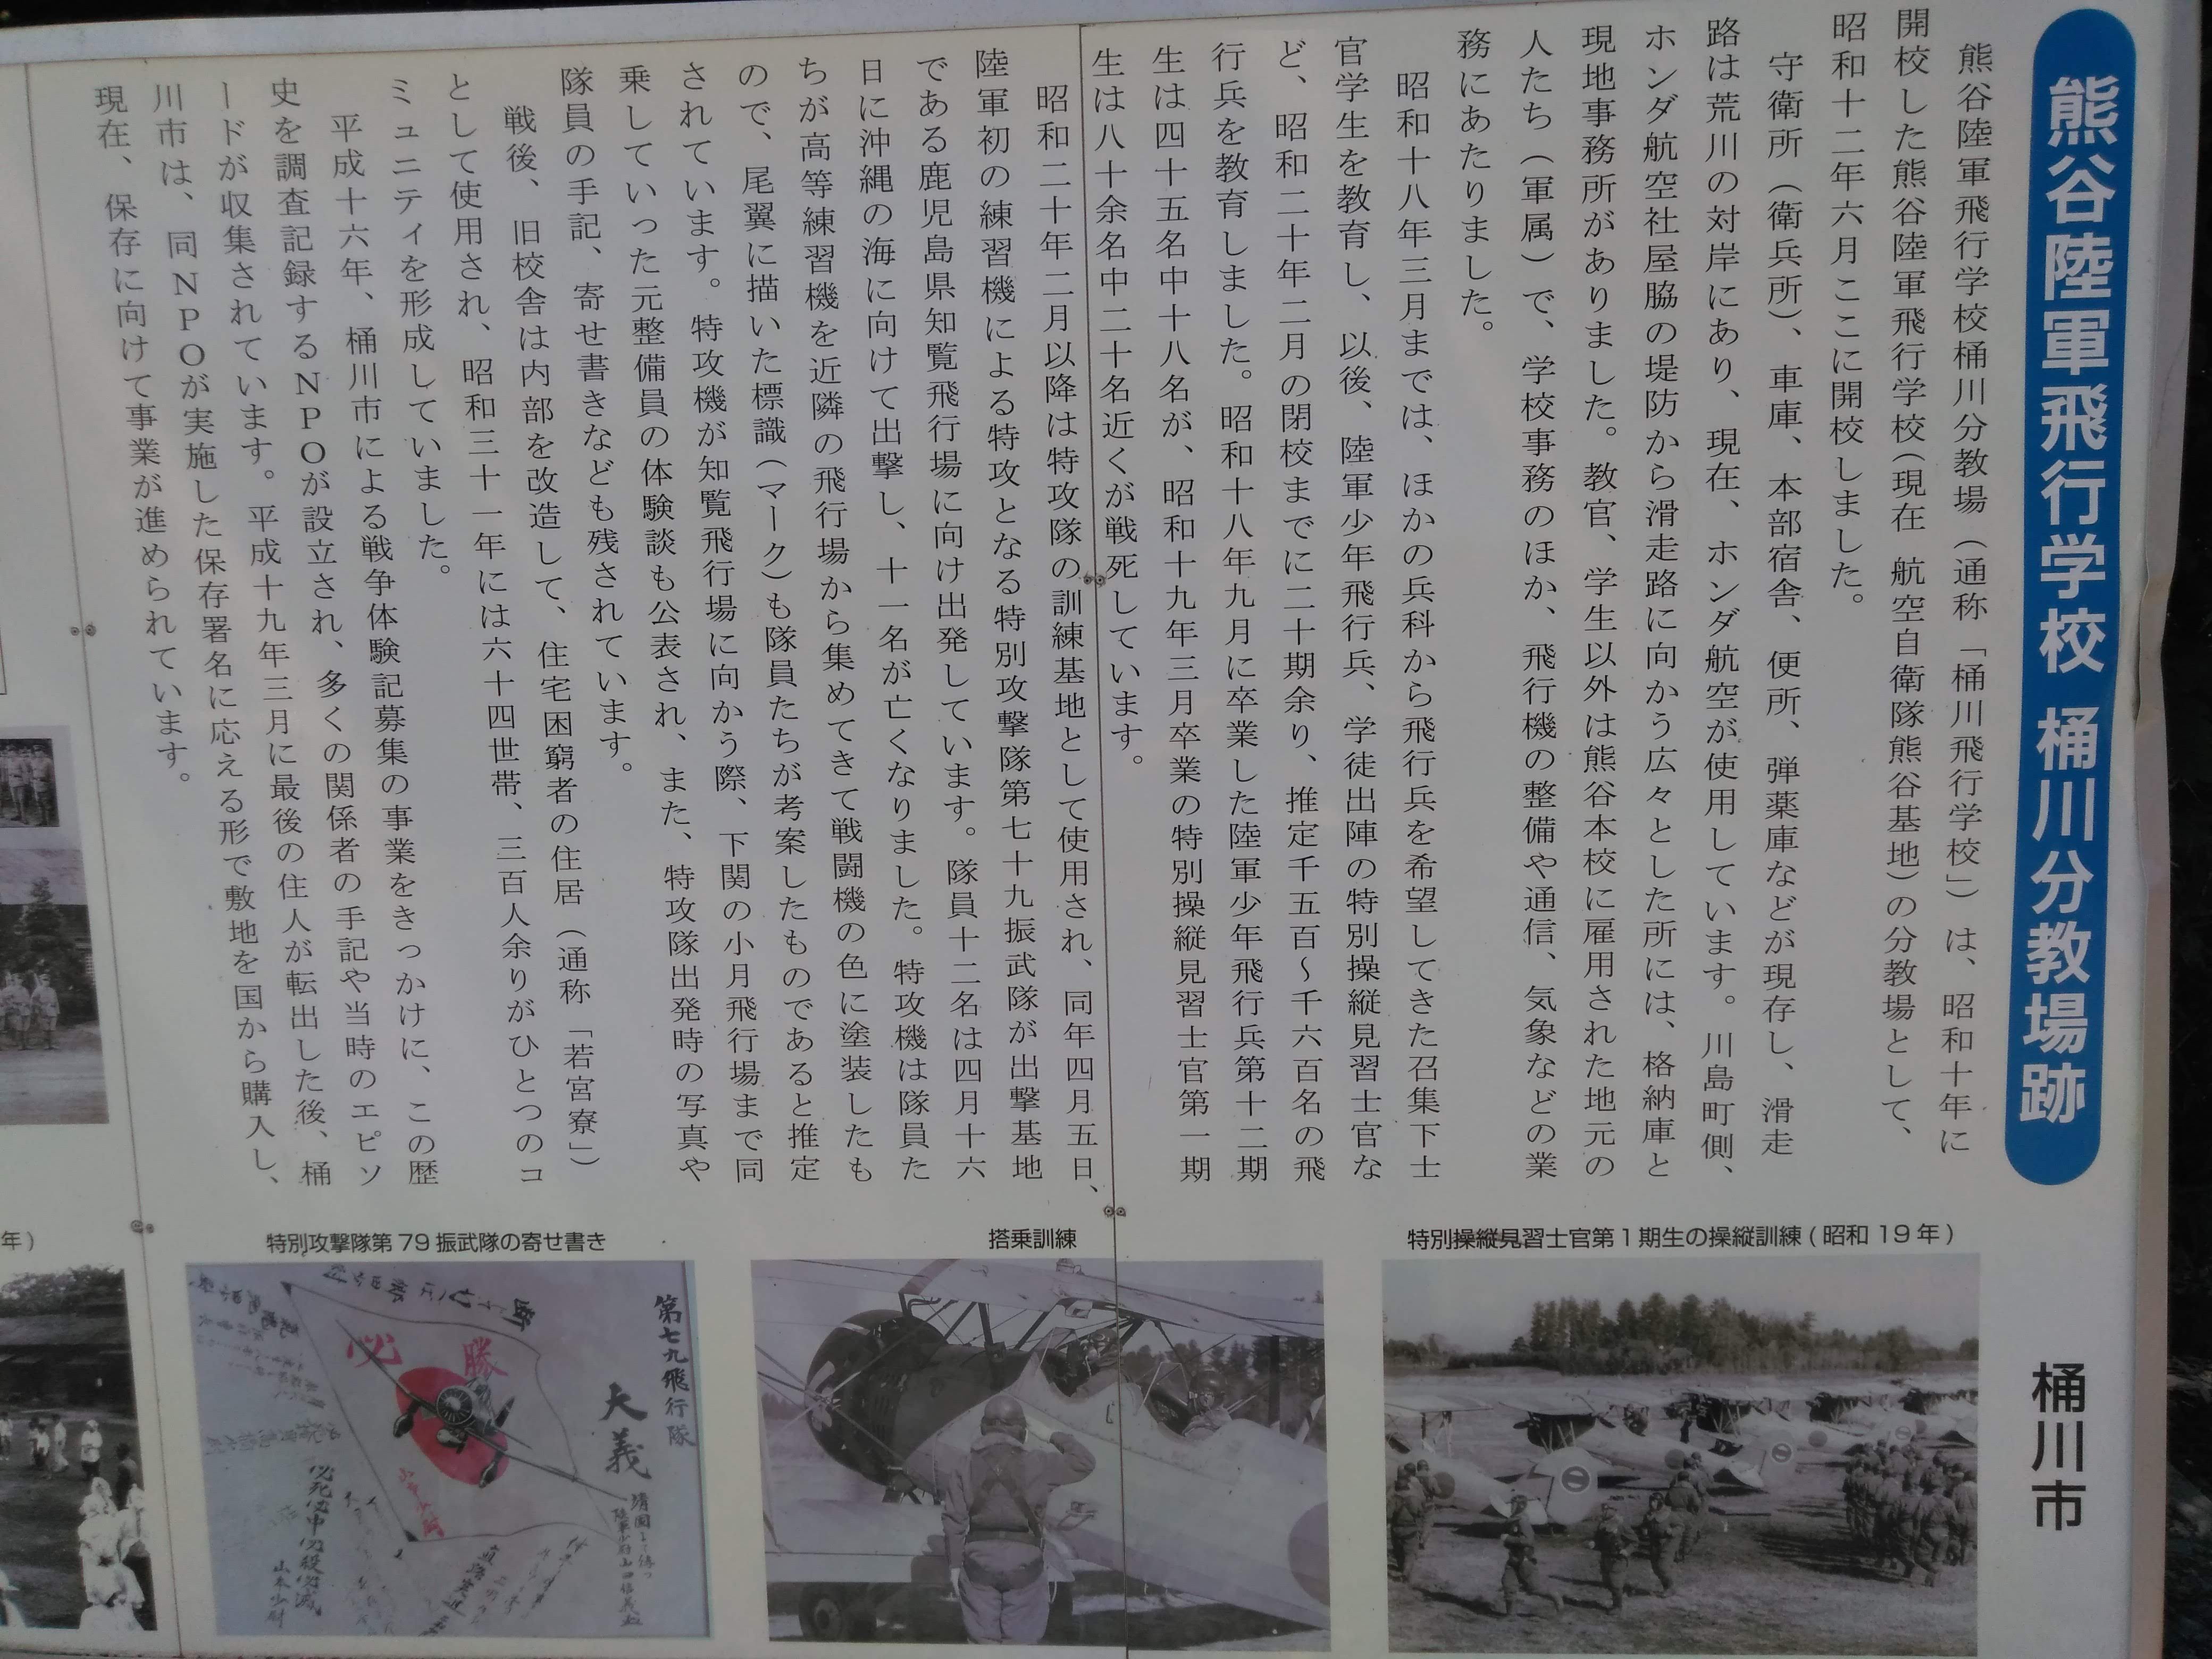 熊谷陸軍飛行学校 桶川分教場跡
桶川市
熊谷陸軍飛行学校桶川分教場（通称「桶川飛行学校」）は、昭和十年に
開校した熊谷陸軍飛行学校（現在 航空自衛隊熊谷基地）の分教場として、
昭和十二年六月ここに開校しました。
守衛所（衛兵所）、車庫、本部宿舎、便所、弾薬庫などが現存し、滑走
路は荒川の対岸にあり、現在、ホンダ航空が使用しています。川島町側、
ホンダ航空社屋脇の堤防から滑走路に向かう広々とした所には、格納庫と
現地事務所がありました。教官、学生以外は熊谷本校に雇用された地元の
人たち（軍属）で、学校事務のほか、飛行機の整備や通信、気象などの業
務にあたりました。
昭和十八年三月までは、ほかの兵科から飛行兵を希望してきた召集下士
官学生を教育し、以後、陸軍少年飛行兵、学徒出陣の特別操縦見習士官な
ど、昭和二十年二月の閉校までに二十期余り、推定千五百～千六百名の飛
行兵を教育しました。昭和十八年九月に卒業した陸軍少年飛行兵第十二期
生は四十五名中十八名が、昭和十九年三月卒業の特別操縦見習士官第一期
生は八十余名中二十名近くが戦死しています。
昭和二十年二月以降は特攻隊の訓練基地として使用され、同年四月五日、
陸軍初の練習機による特攻となる特別攻撃隊第七十九振武隊が出撃基地
である鹿児島県知覧飛行場に向け出発しています。隊員十二名は四月十六
日に沖縄の海に向けて出撃し、十一名が亡くなりました。特攻機は隊員た
ちが高等練習機を近隣の飛行場から集めてきて戦闘機の色に塗装したも
ので、尾翼に描いた標識（マーク）も隊員たちが考案したものであると推定
されています。特攻機が知覧飛行場に向かう際、下関の小月飛行場まで同
乗していった元整備員の体験談も公表され、また、特攻隊出発時の写真や
隊員の手記、寄せ書きなども残されています。
戦後、旧校舎は内部を改造して、住宅困窮者の住居（通称「若宮寮」）
として使用され、昭和三十一年には六十四世帯、三百人余りがひとつのコ
ミュニティを形成していました。
平成十六年、桶川市による戦争体験記募集の事業をきっかけに、この歴
史を調査記録するＮＰＯが設立され、多くの関係者の手記や当時のエピソ
ードが収集されています。平成十九年三月に最後の住人が転出した後、桶
川市は、同ＮＰＯが実施した保存署名に応える形で敷地を国から購入し、
現在、保存に向けて事業が進められています。
特別操縦見習士官第１期生の操縦訓練（昭和 19 年）
搭乗訓練
特別攻撃隊第 79 振武隊の寄せ書き
年）
第七九飛行隊
大義
必勝
必死必中必殺必滅
山本少尉